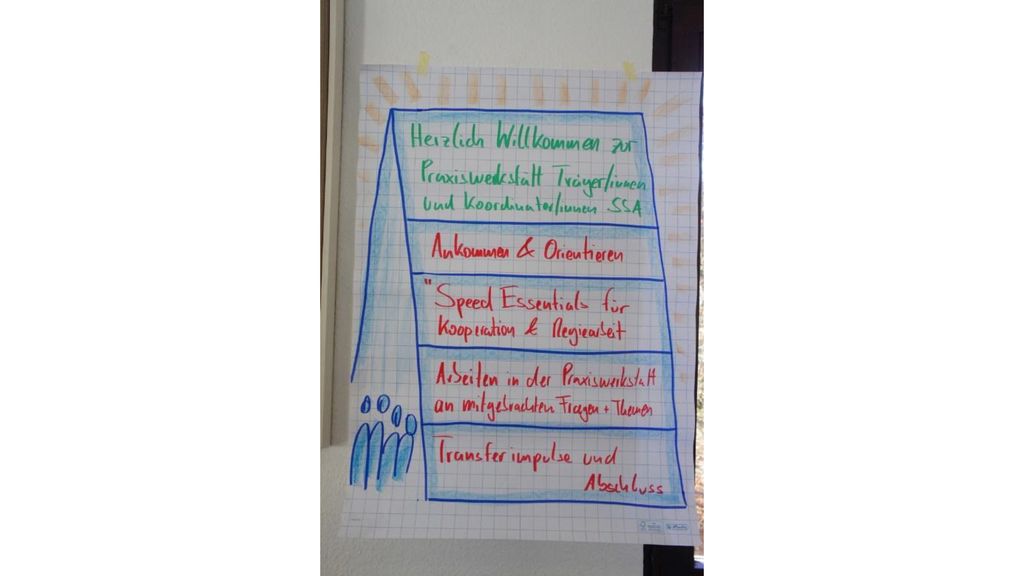 Herzlich Willkommen zur
Praxiswerkstatt Träger/innen
und Koordinator/innen SSA
Ankommen & Orientieren
"Speed Essentials für
Kooperation & Regiearbeit
Arbeiten in der Praxiswerkstatt
an mitgebrachten Fragen + Themen
Transferimpulse und
Abschluss